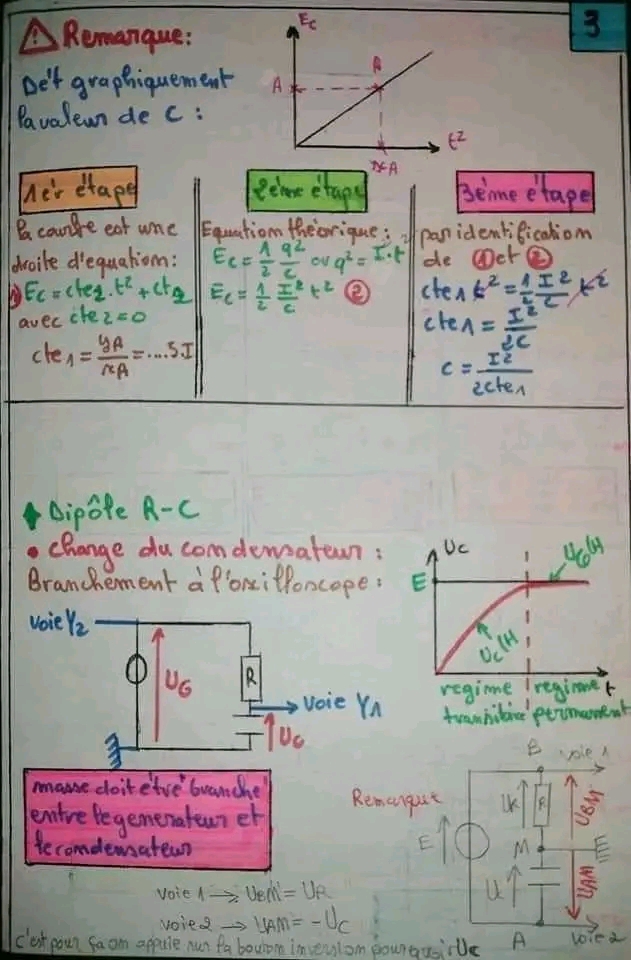 3
⚠ Remarque:
Dét graphiquement
la valeur de C :
Ec
A
A
xA
t²
1ér étape
la courbe est une
droite d'equation:
① Ec = cte₁.t² + cte₂
avec cte₂ = 0
cte₁ = yA/xA = ....S.I
2éme étape
Equation théorique:
Ec = 1/2 q²/C or q² = I.t
Ec = 1/2 I²/C t² ②
3éme étape
par identification
de ① et ②
cte₁ t² = 1/2 I²/C t²
cte₁ = I²/2C
C = I²/2cte₁
Dipôle R-C
• charge du condensateur :
Branchement à l'oscilloscope :
voie Y₂
UG
R
voie Y₁
Uc
Uc
E
UG(t)
Uc(t)
regime transitoire
regime permanent
t
masse doit être branché
entre le generateur et
le condensateur
Remarque
B
voie 1
E
UR
R
UBM
M
Uc
UAM
A
voie 2
voie 1 → UBM = UR
voie 2 → UAM = -Uc
c'est pour ça on appuie sur la bouton inversion pour avoir Uc